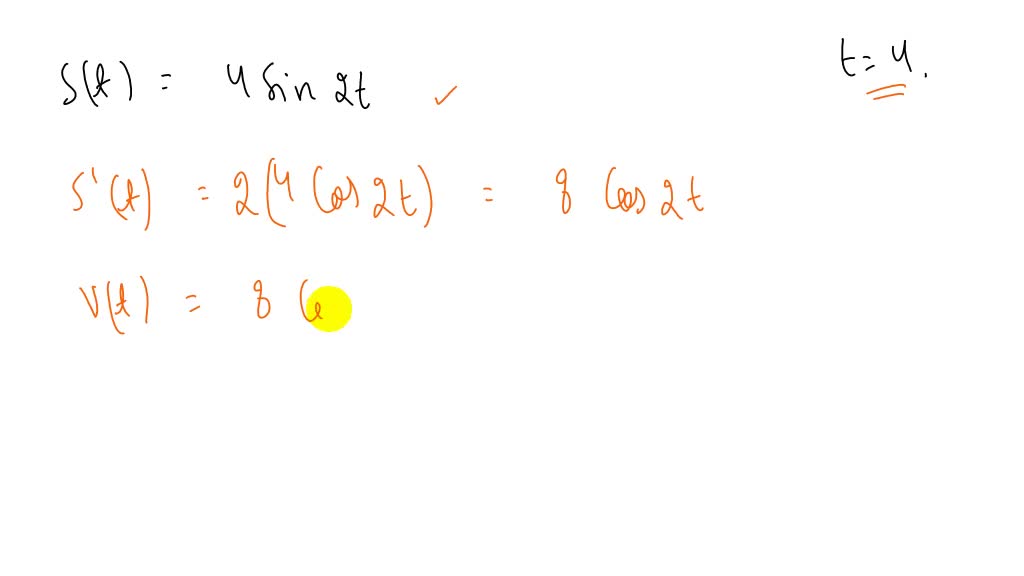 S(t) = 4 Sin 2t ✓
t = 4.
S'(t) = 2(4 Cos 2t) = 8 Cos 2t
V(t) = 8 (